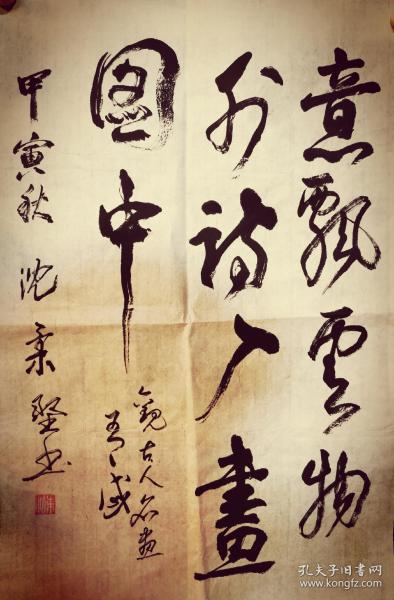 意飘云物
外诗入畫
图中
观古人名画
有感
甲寅秋 沈柔坚书
孔夫子旧书网
www.kongfz.com